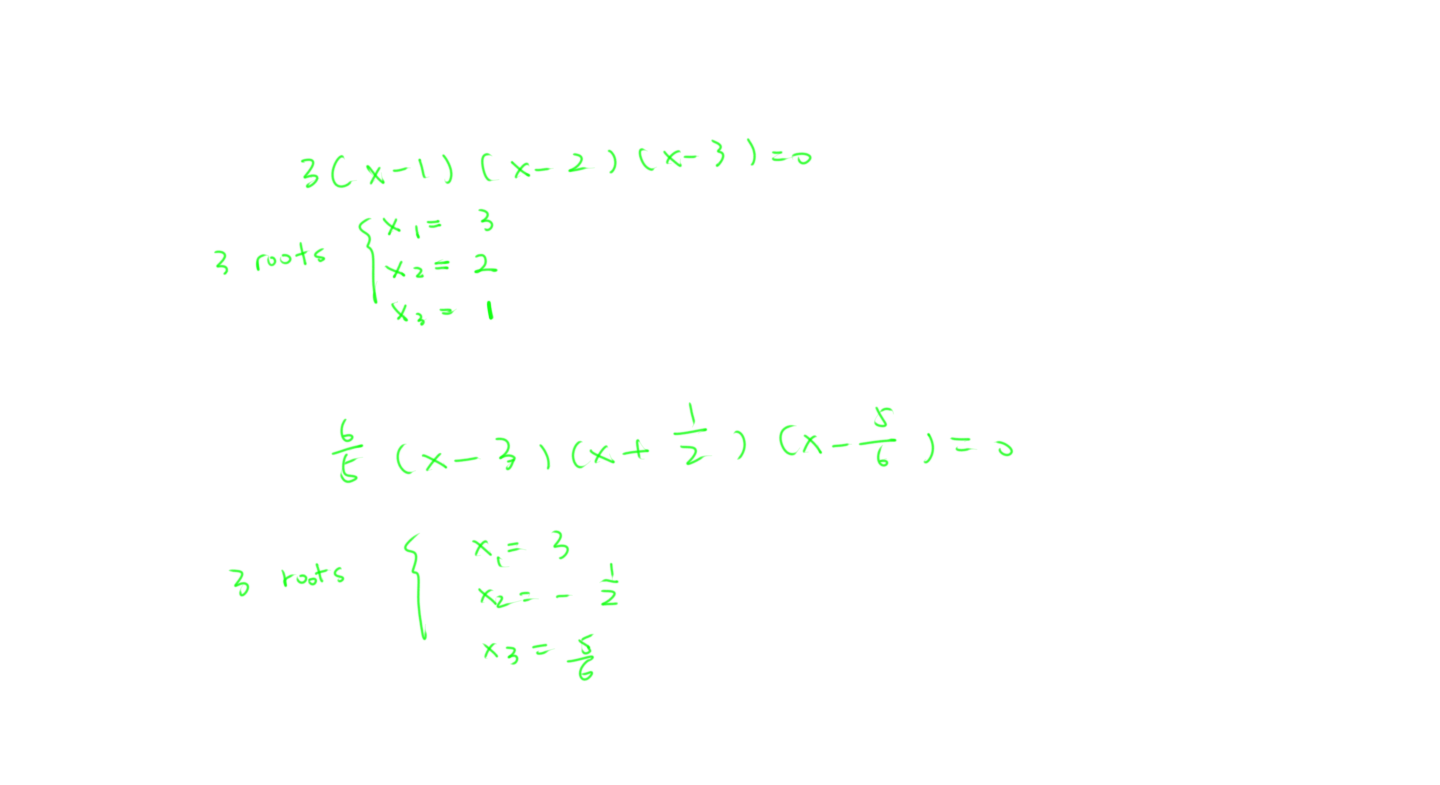 3(x-1)(x-2)(x-3)=0
3 roots { x₁= 3
x₂= 2
x₃= 1
6/5 (x-3)(x+1/2)(x-5/6)=0
3 roots { x₁= 3
x₂= - 1/2
x₃= 5/6